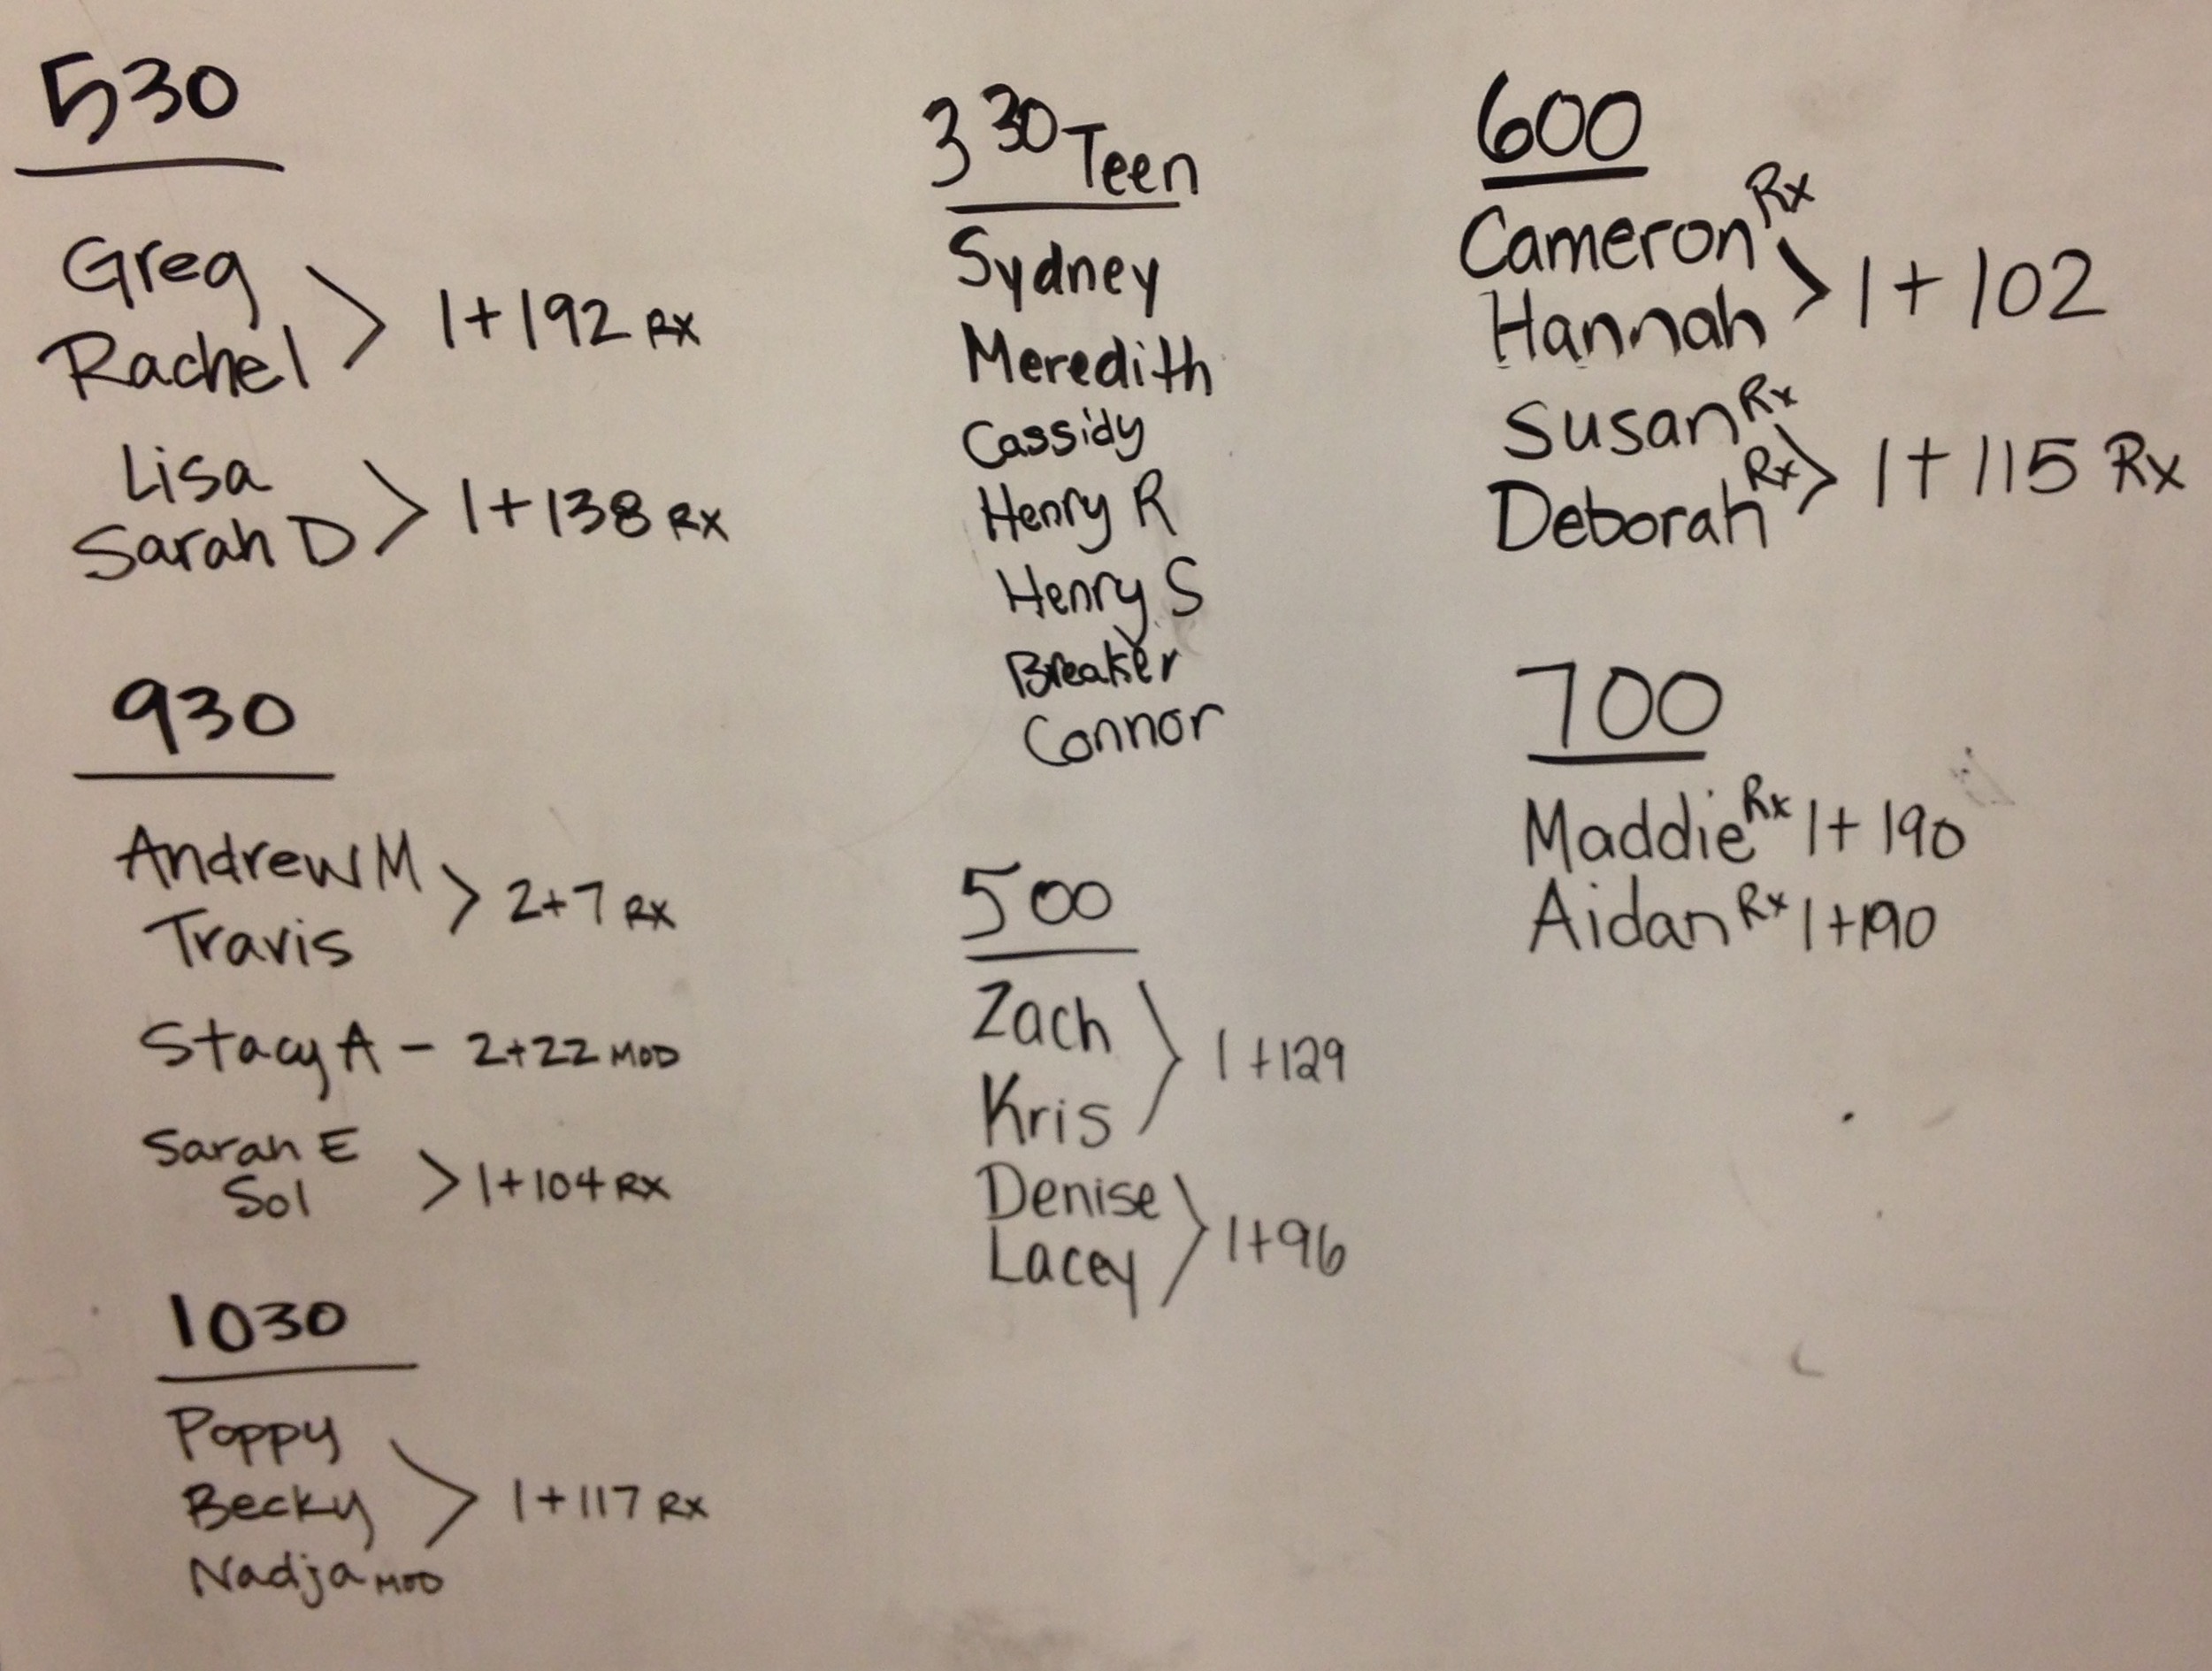 530
Greg
Rachel > 1+192 RX
Lisa
Sarah D > 1+138 RX
930
Andrew M
Travis > 2+7 RX
Stacy A - 2+22 MOD
Sarah E
Sol > 1+104 RX
1030
Poppy
Becky > 1+117 RX
Nadja MOD
3 30 Teen
Sydney
Meredith
Cassidy
Henry R
Henry S
Breaker
Connor
500
Zach
Kris } 1+129
Denise
Lacey } 1+96
600
Cameron Rx
Hannah > 1+102
Susan Rx
Deborah Rx > 1+115 Rx
700
Maddie Rx 1+190
Aidan Rx 1+190